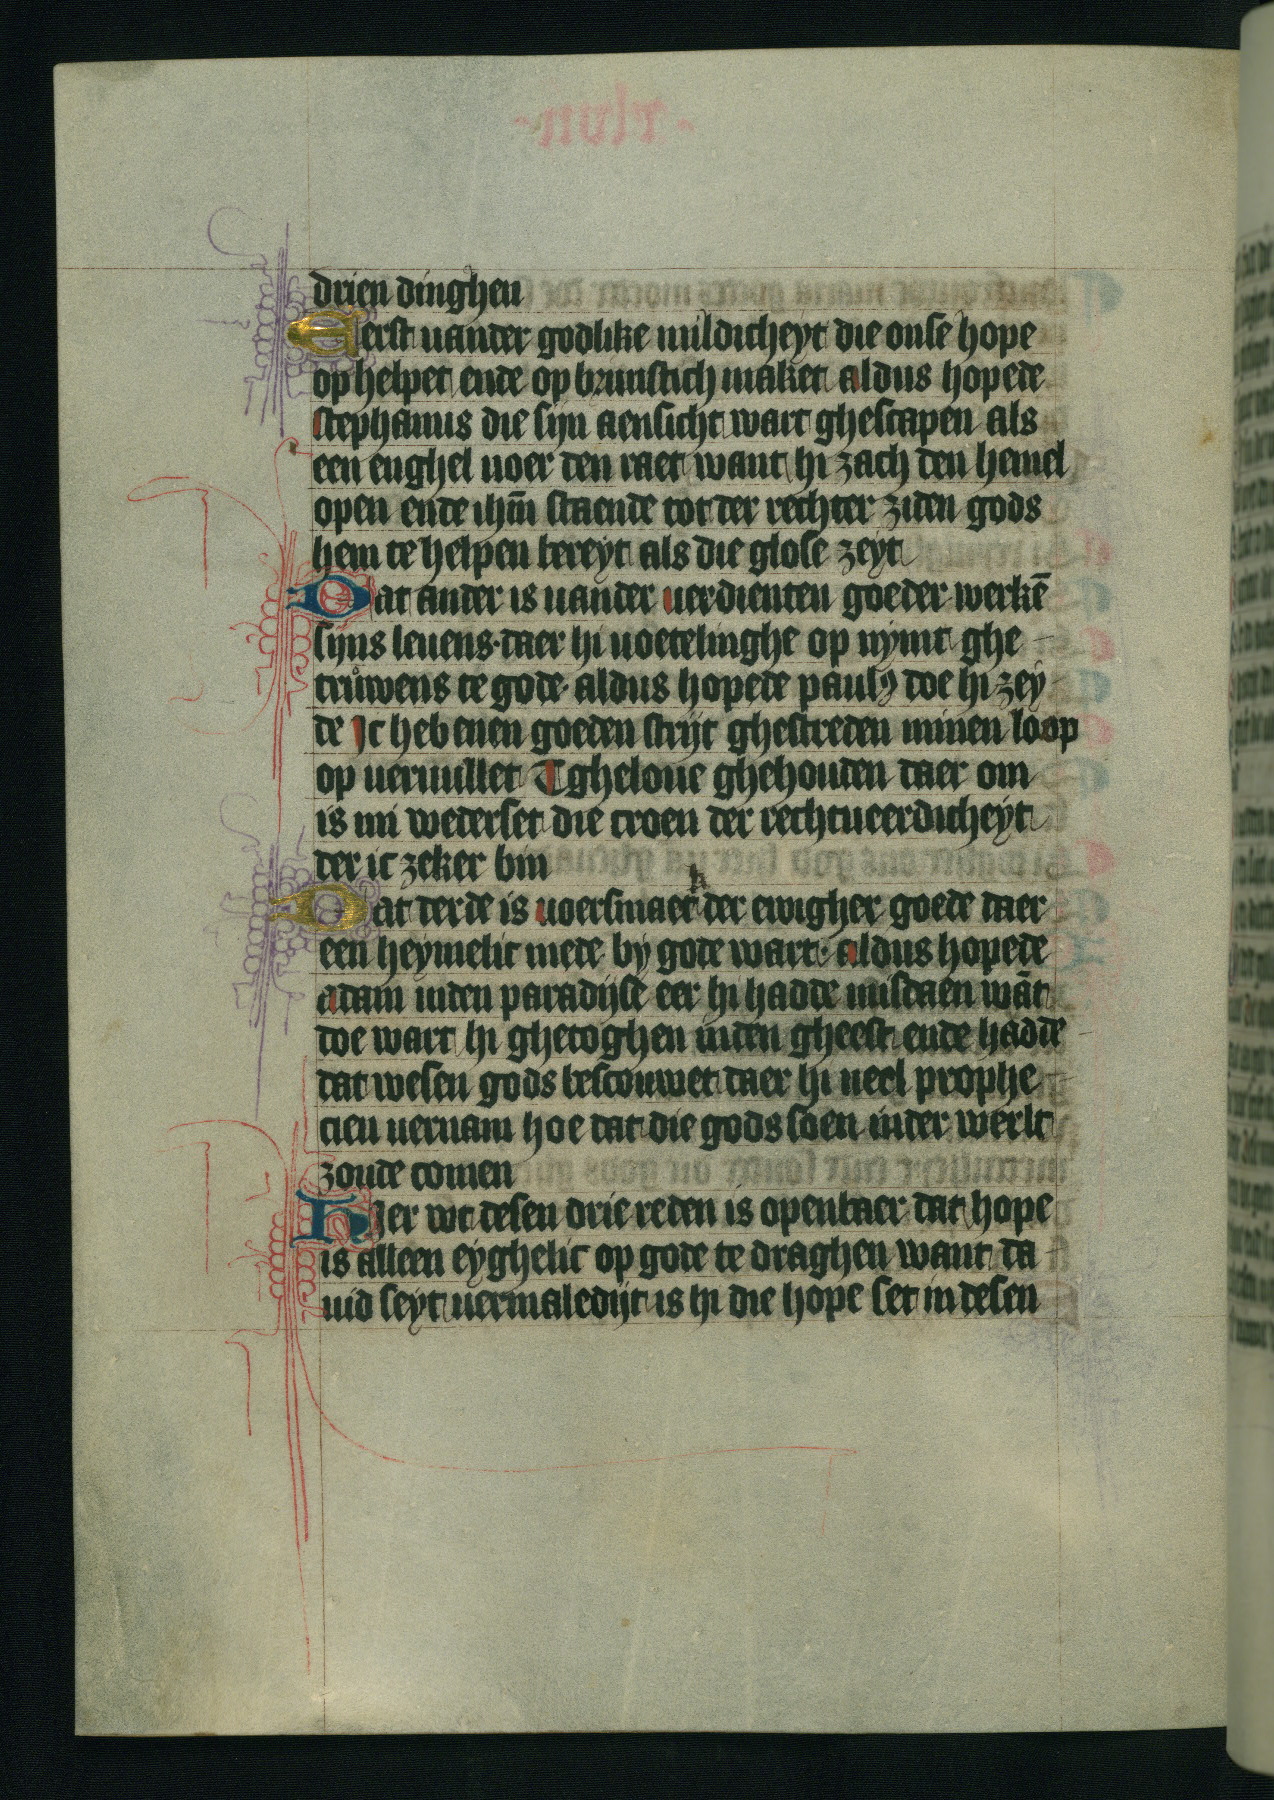 drien dinghen
Eerst vander godlike mildicheyt die onse hope
op helpet ende op brunstich maket aldus hopede
stephanus die sijn aensicht wart ghescapen als
een enghel voer den raet want hi zach den hemel
open ende ihm̄ staende tot der rechter ziden gods
hem te helpen bereyt als die glose zeyt
Dat ander is vander verdienten goeder werkē
sijns levens·daer hi voetelinghe op nymt ghe
truͦwens te gode· aldus hopede paulꝰ doe hi zey
de Ic heb enen goeden strijt ghestreden minen loop
op vervullet Tghelove ghehouden daer om
is mi wederset die croen der rechtveerdicheyt
der ic zeker bin
Dat derde is voersmaec der ewigher goede daer
een heymelic mede by gode wart· aldus hopede
adam inden paradijse eer hi hadde misdaen wāt
doe wart hi ghetoghen inden gheest ende hadde
dat wesen gods bescouwet daer hi veel prophe
cien vernam hoe dat die gods soen inder werlt
zoude comen
Hier wt desen drie reden is openbaer dat hope
is alleen eyghelic op gode te draghen want da
vid seyt vermaledijt is hi die hope set in desen